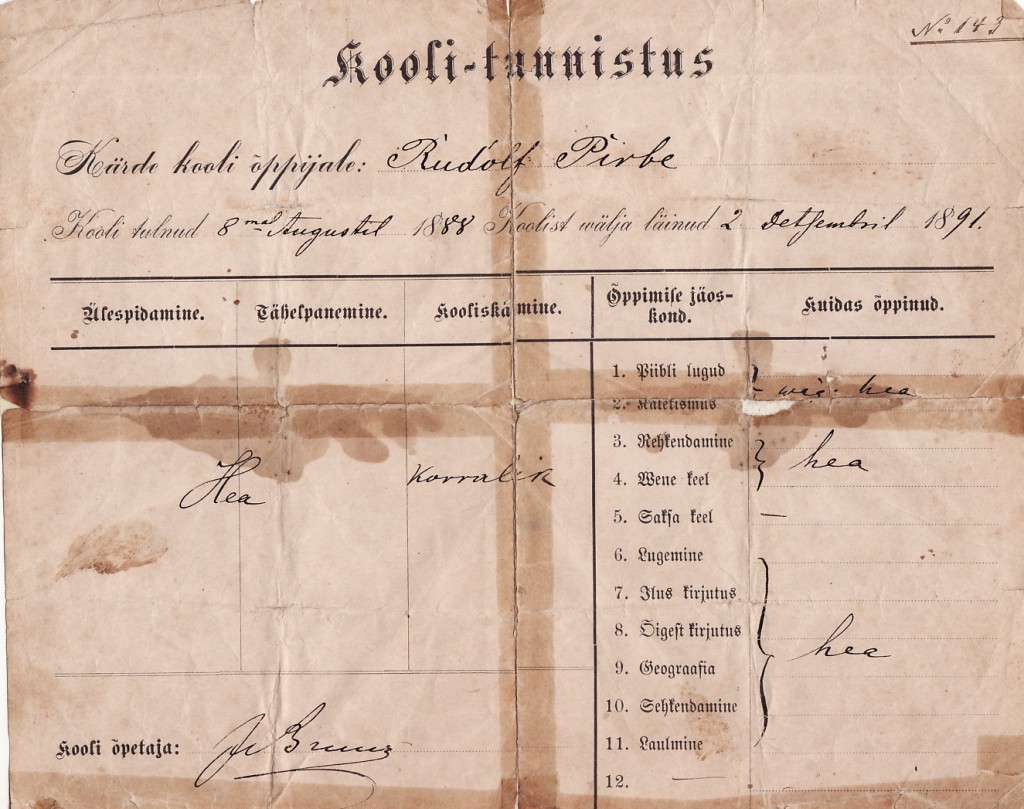 No 143
Kooli-tunnistus
Kärde kooli õppijale: Rudolf Pirbe
Kooli tulnud 8mal Augustil 1888 Koolist wälja läinud 2 Detsembril 1891.
Ülespidamine. Tähelpanemine. Kooliskämine. Õppimise jäos-
kond. Kuidas õppinud.
1. Piibli lugud
2. Katekismus
hea
3. Rehkendamine
4. Wene keel
hea
Hea korralik
5. Saksa keel —
6. Lugemine
7. Ilus kirjutus
8. Õigest kirjutus
hea
9. Geograafia
10. Sehkendamine
11. Laulmine
12. —
Kooli õpetaja: